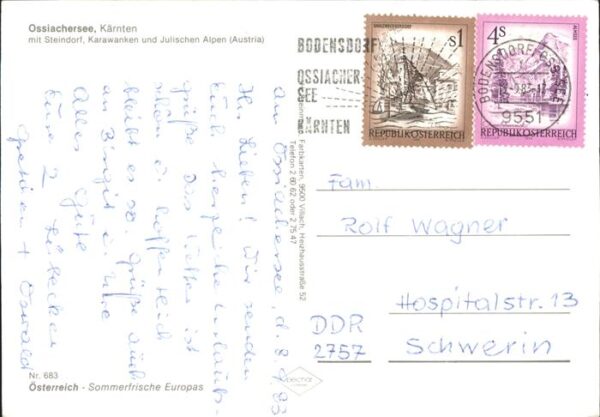 Ossiachersee, Kärnten
mit Steindorf, Karawanken und Julischen Alpen (Austria)
BODENSDORF
OSSIACHER-
SEE
KÄRNTEN
S1
REPUBLIK ÖSTERREICH
4S
ALMSEE
REPUBLIK ÖSTERREICH
BODENSDORF
9551
Farbkarten, 9500 Villach, Heizhausstraße 52
Telefon 2 60 62 oder 2 75 47
Am Ossiachersee, d. 8. 9. 83
Ihr Lieben! Wir senden
Euch herzliche Urlaubs-
grüße. Das Wetter ist
schön u. hoffentlich
bleibt es so. Grüße auch
an Birgit u. Uwe
Alles Gute
Eure 2
+ Oswald
Fam.
Rolf Wagner
Hospitalstr. 13
DDR
2757 Schwerin
Nr. 683
Österreich - Sommerfrische Europas